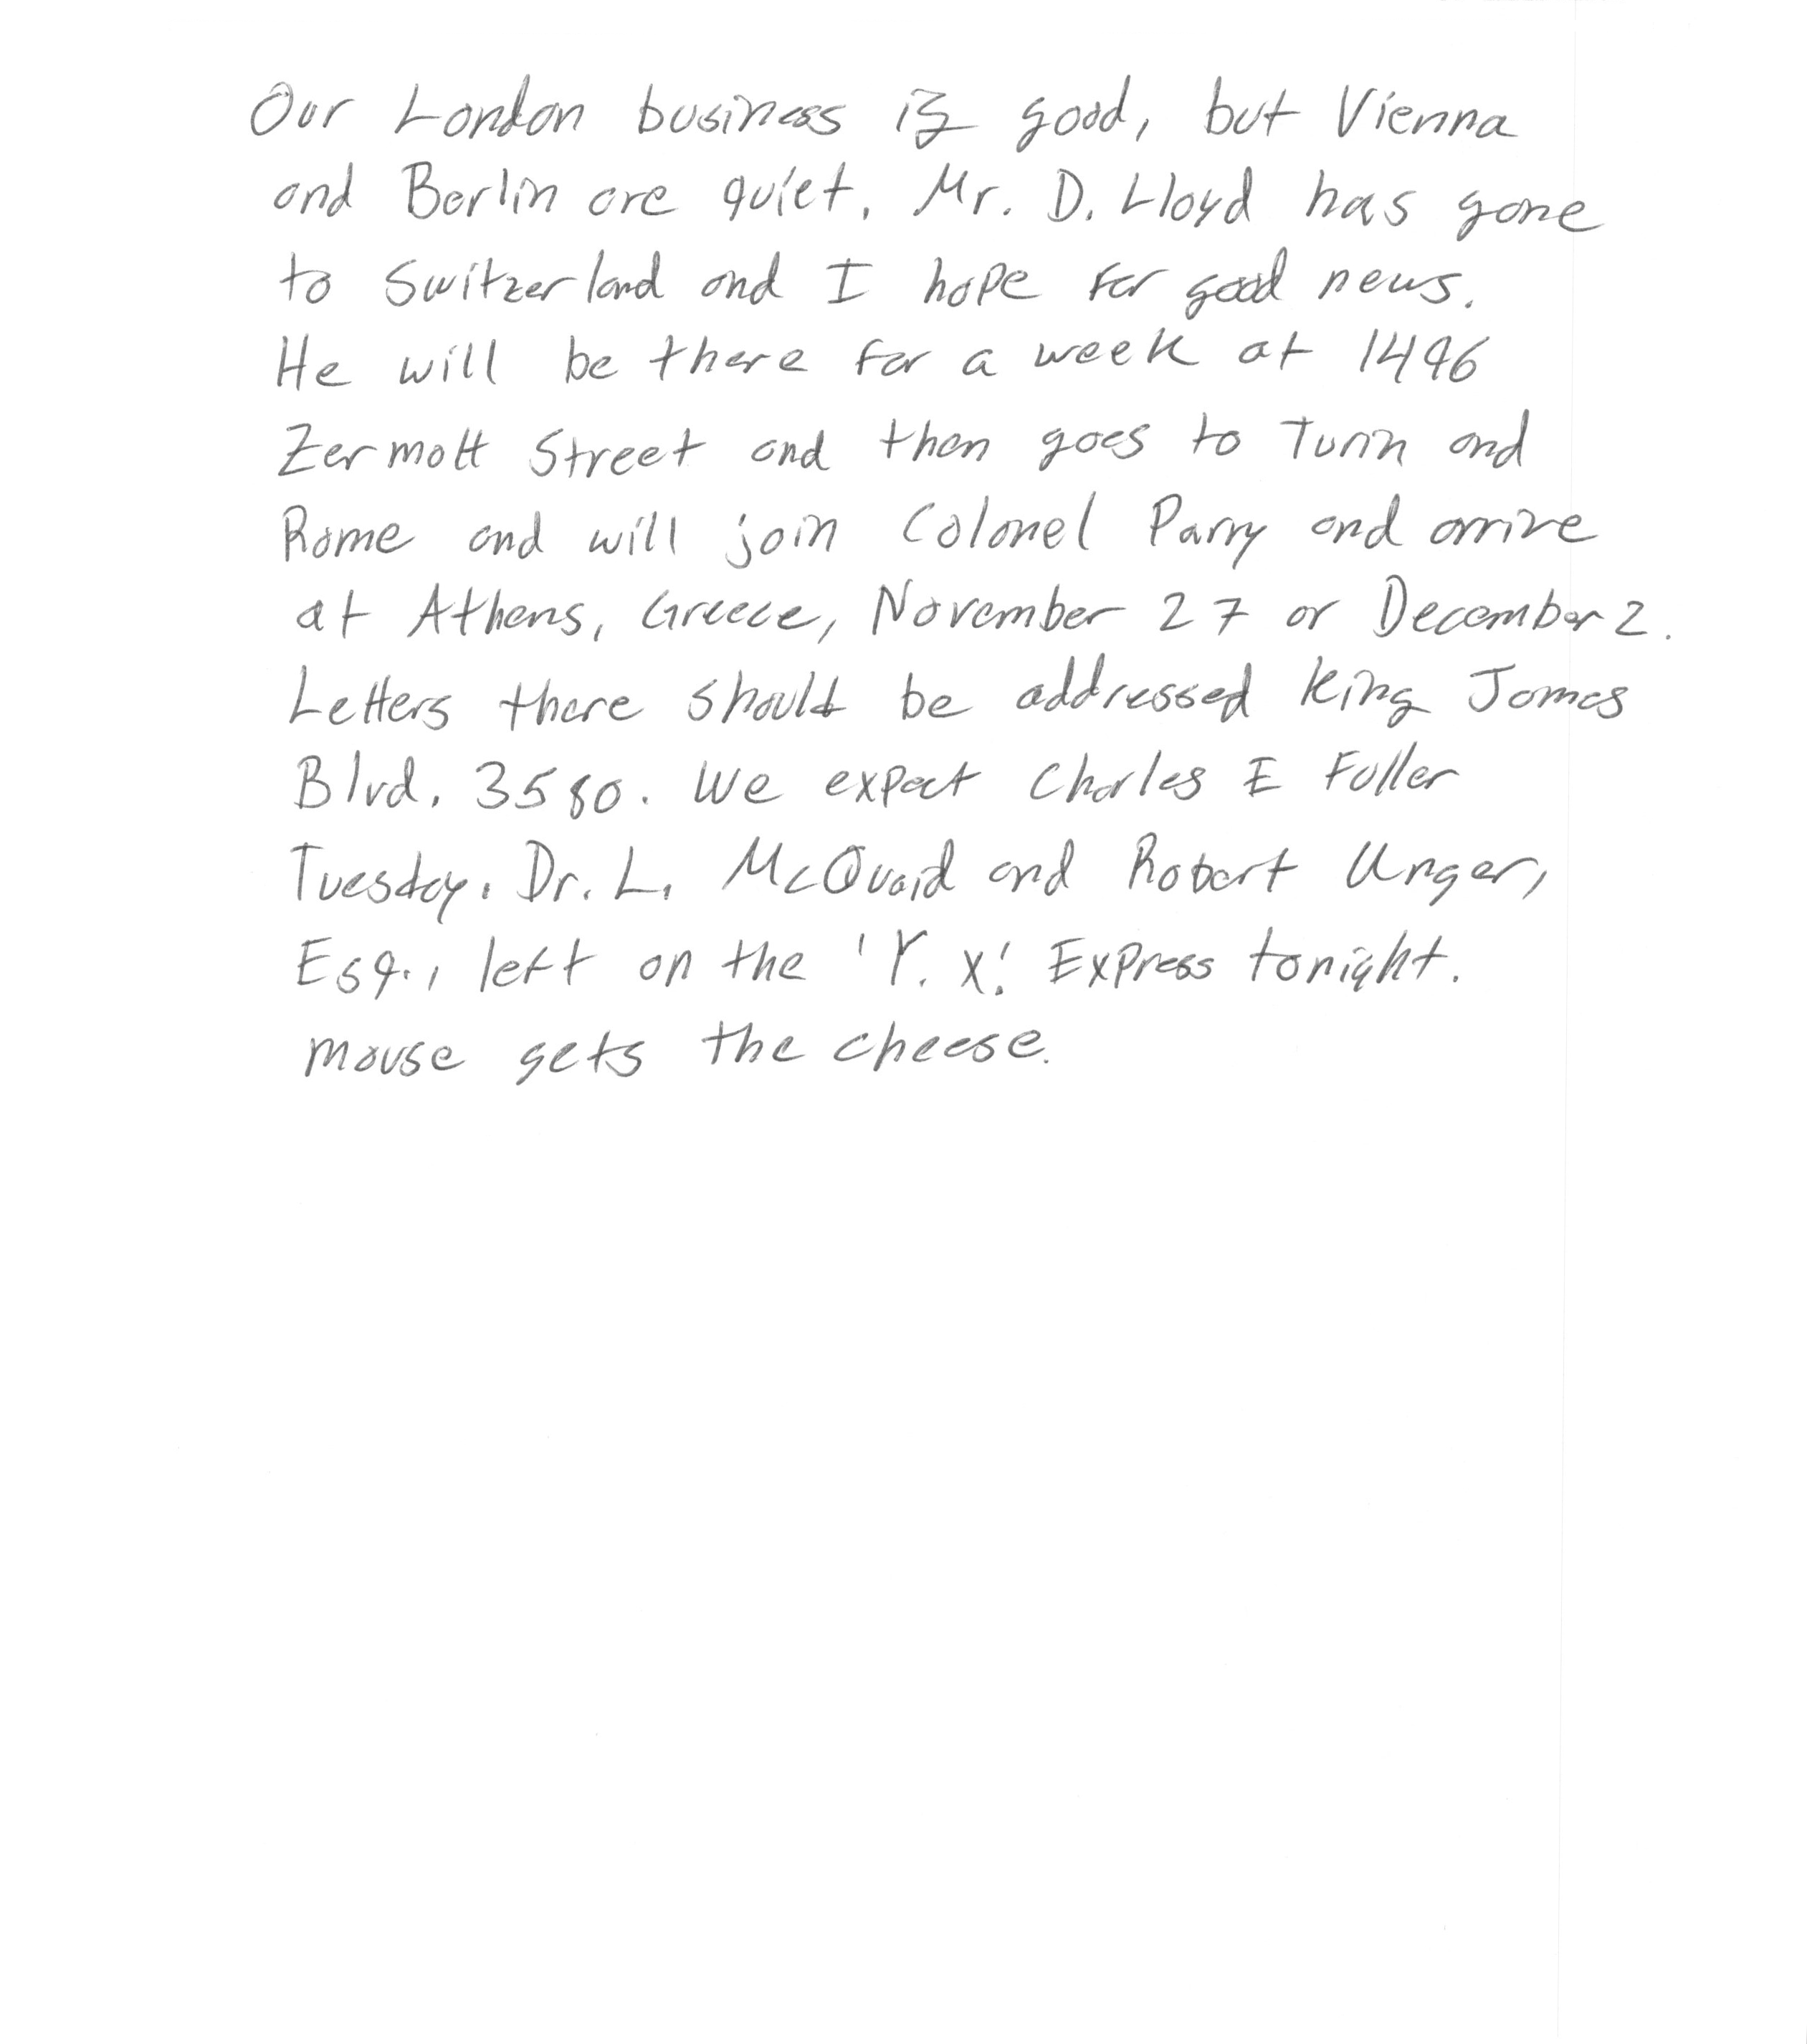 Our London business is good, but Vienna
and Berlin are quiet. Mr. D. Lloyd has gone
to Switzerland and I hope for good news.
He will be there for a week at 1496
Zermott Street and then goes to Turin and
Rome and will join Colonel Parry and arrive
at Athens, Greece, November 27 or December 2.
Letters there should be addressed King James
Blvd. 3580. We expect Charles E Fuller
Tuesday. Dr. L. McQuaid and Robert Unger,
Esq., left on the 'Y. X.' Express tonight.
mouse gets the cheese.